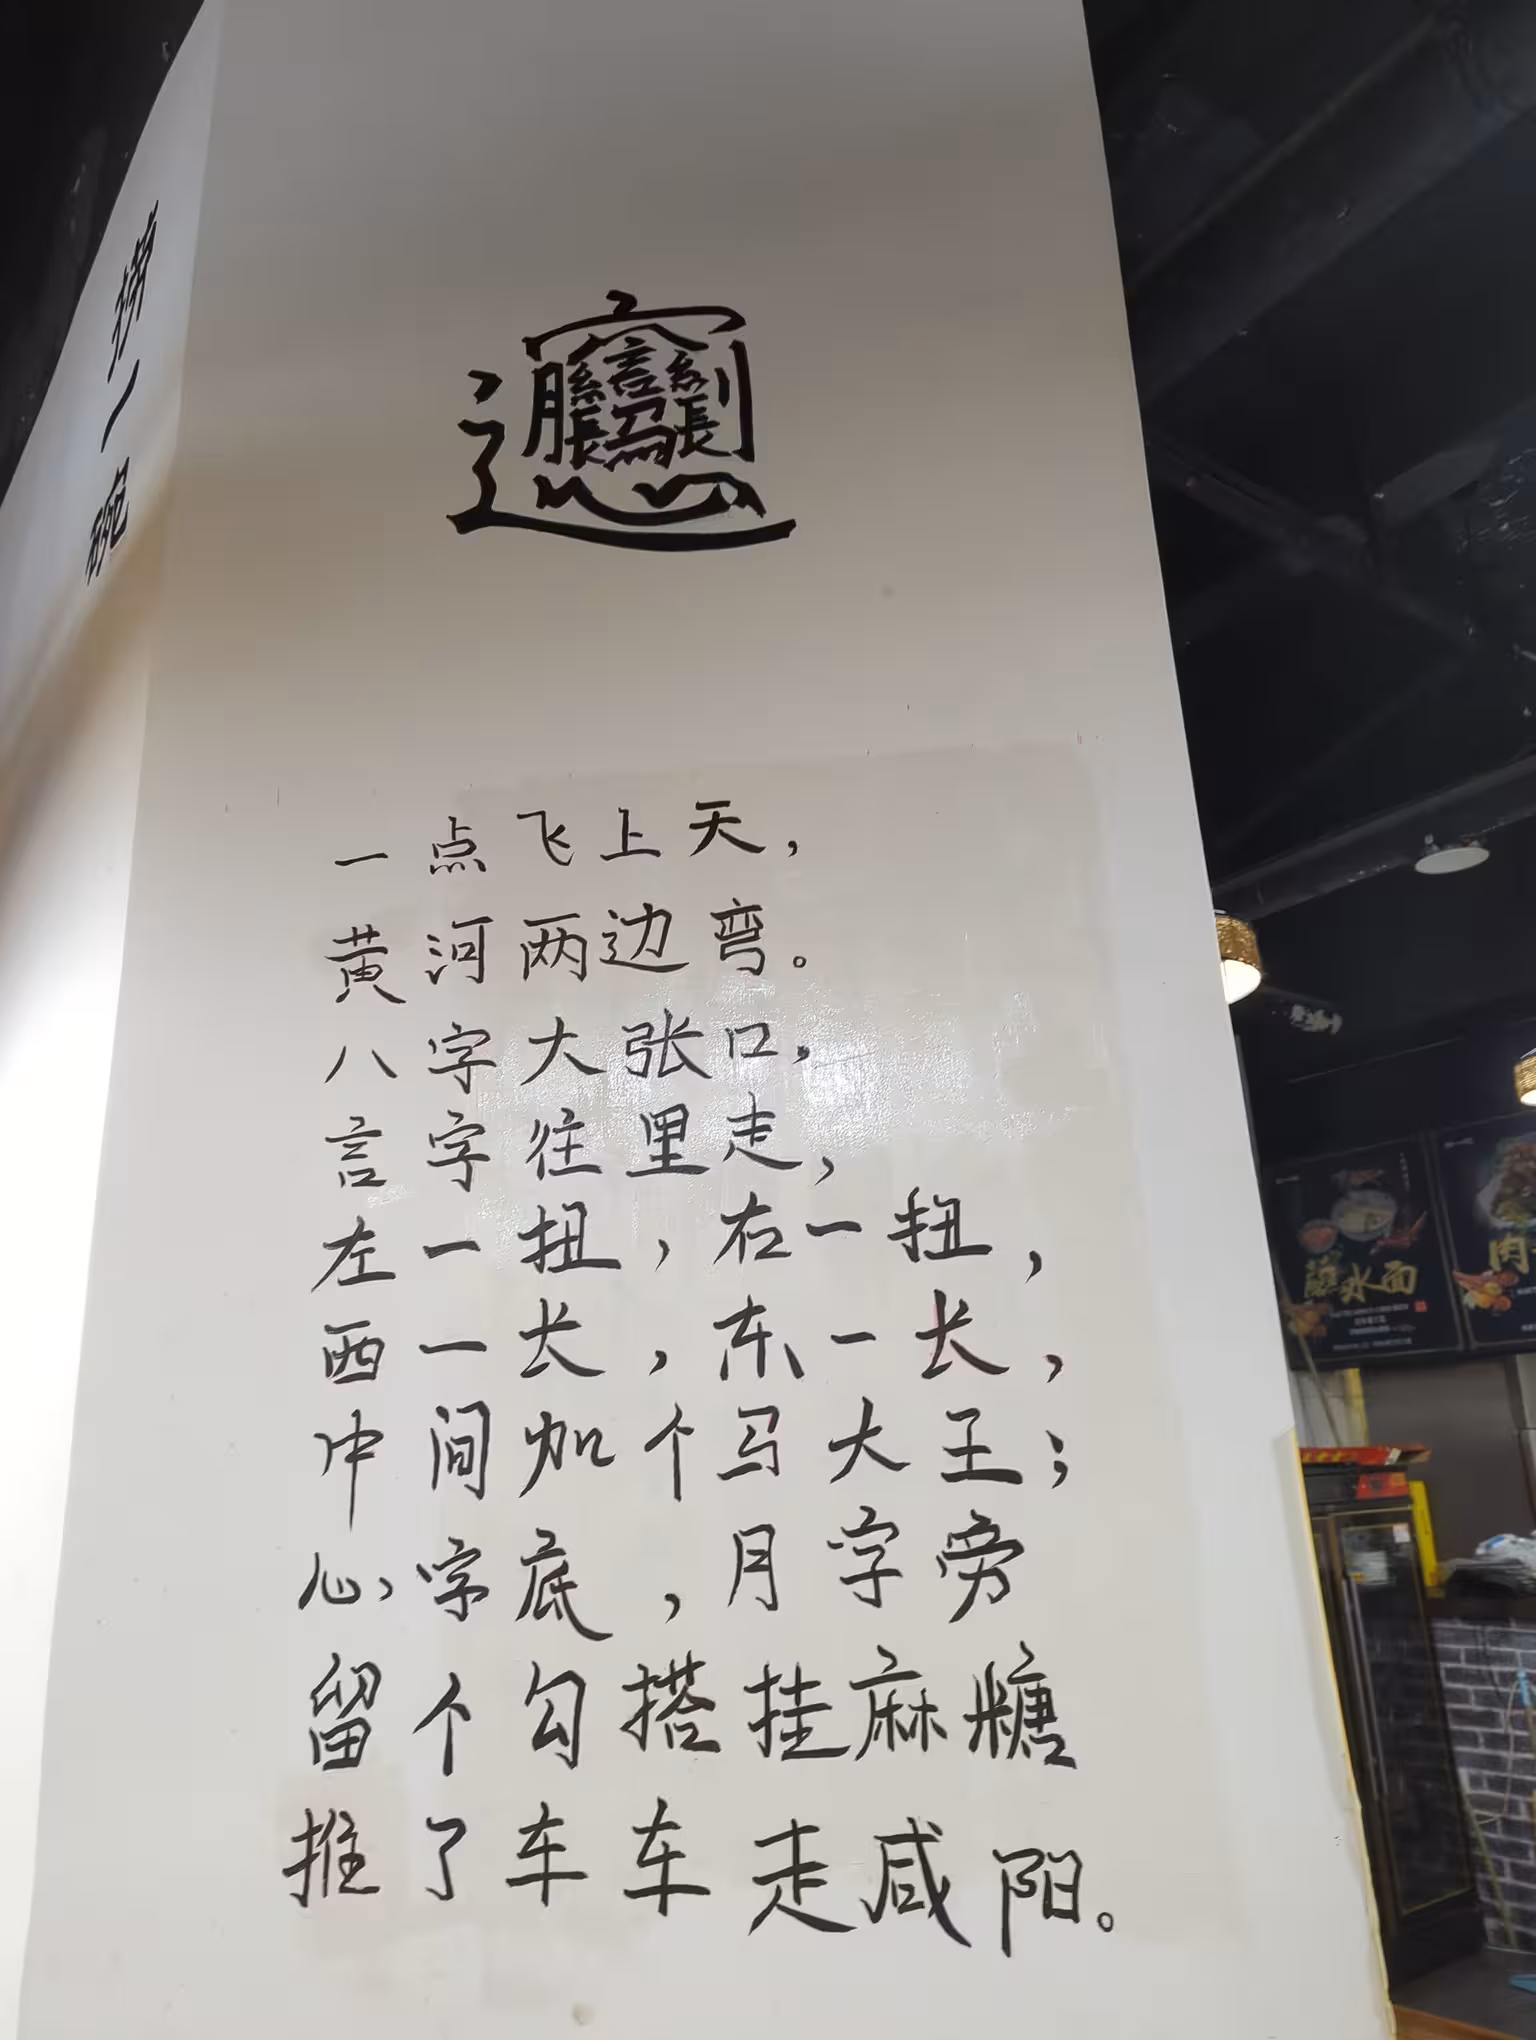 𰻝
一点飞上天,
黄河两边弯。
八字大张口,
言字往里走,
左一扭,右一扭,
西一长,东一长,
中间加个马大王;
心字底,月字旁
留个勾搭挂麻糖
推了车车走咸阳。
一碗
蘸水面
肉